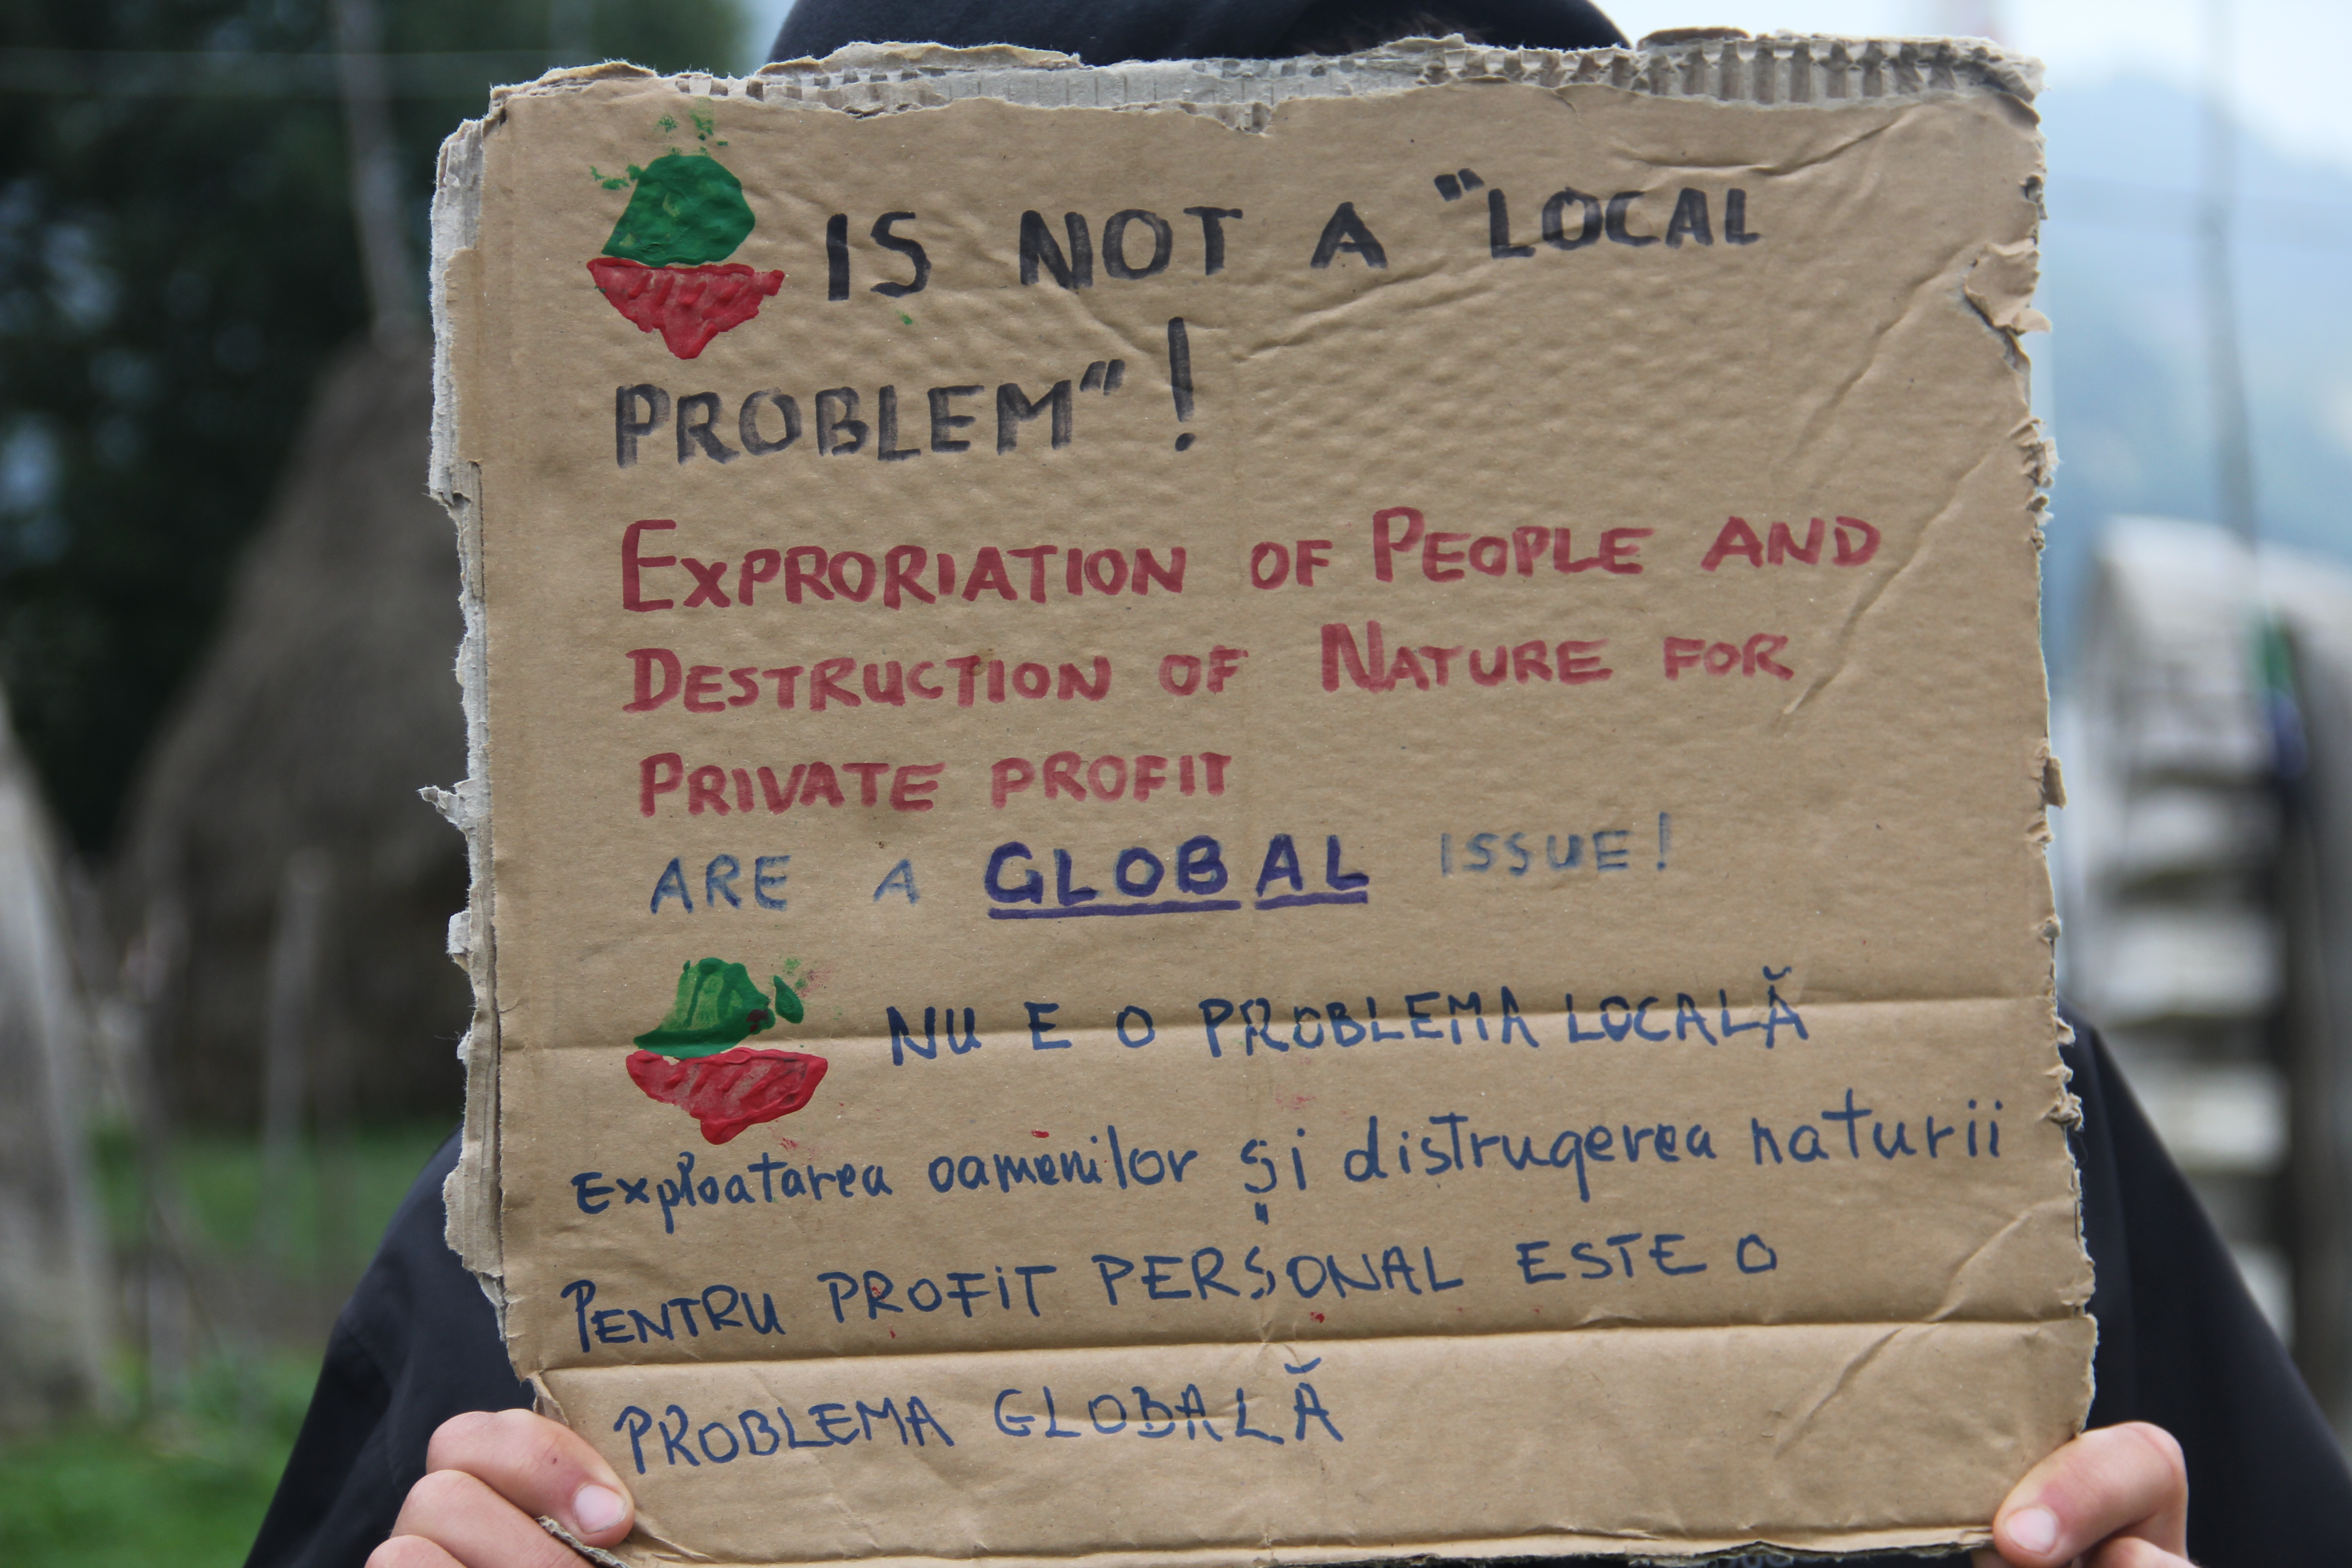 IS NOT A "LOCAL
PROBLEM"!
EXPRORIATION OF PEOPLE AND
DESTRUCTION OF NATURE FOR
PRIVATE PROFIT
ARE A GLOBAL ISSUE!
NU E O PROBLEMA LOCALĂ
Exploatarea oamenilor și distrugerea naturii
PENTRU PROFIT PERSONAL ESTE O
PROBLEMA GLOBALĂ